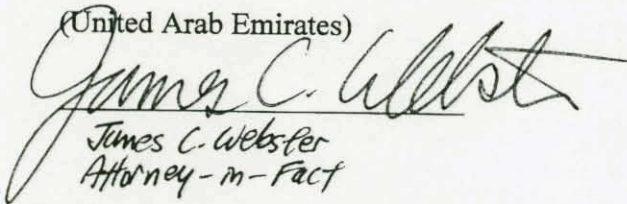 (United Arab Emirates)
James C. Webster
James C. Webster
Attorney-in-Fact